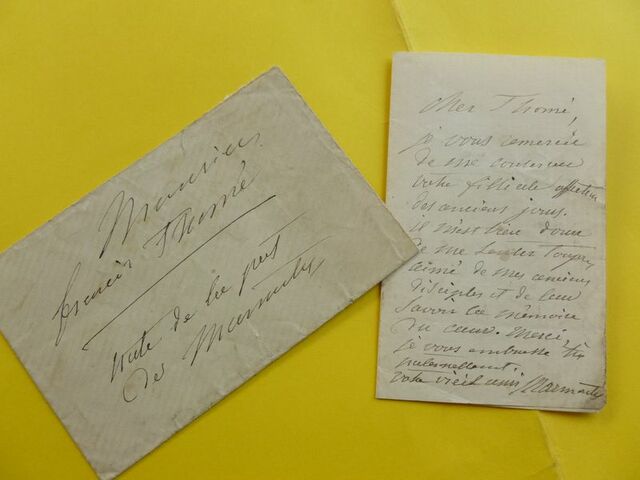 Monsieur
francis Thomé
de la part
des Marmontel
Cher Thomé,
je vous remercie
de me conserver
votre filliale affection
des anciens jours.
il m'est bien doux
de me sentir toujours
aimé de mes anciens
disciples et de leur
savoir la mémoire
du cœur. Merci,
je vous embrasse très
paternellement.
votre vieil ami Marmontel